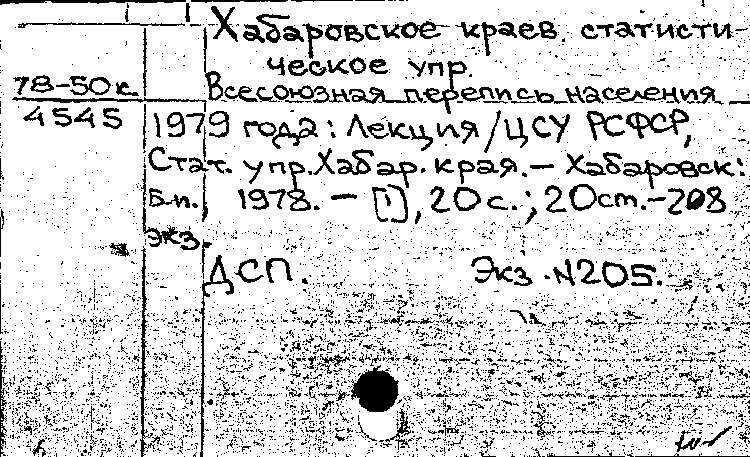 Хабаровское краев. статисти-
ческое упр.
78-50к
Всесоюзная перепись населения
4545
1979 года: Лекция/ЦСУ РСФСР,
Стат. упр. Хабар. края. – Хабаровск:
Б.и., 1978. – [1], 20 с.; 20 cm. – 208
экз.
ДСП. Экз. №205.